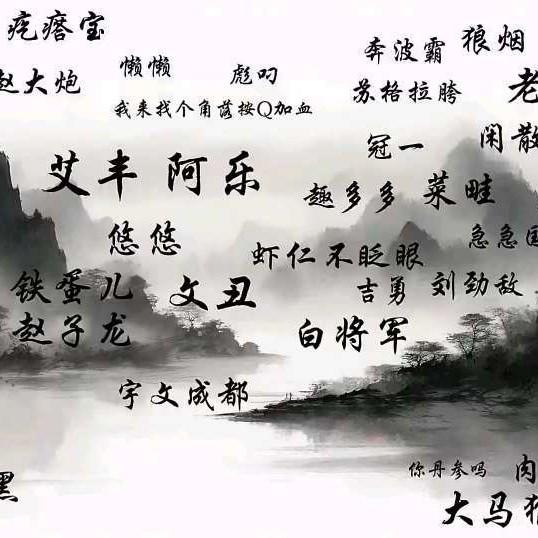 疙瘩宝
狼烟
奔波霸
赵大炮
懒懒
彪叼
苏格拉胯
老
我来找个角落按Q加血
冠一
闲散
艾丰
阿乐
趣多多
菜畦
悠悠
急急国
虾仁不眨眼
铁蛋儿
文丑
吉勇
刘劲敌
赵子龙
白将军
宇文成都
你丹参吗
肉
黑
大马猴